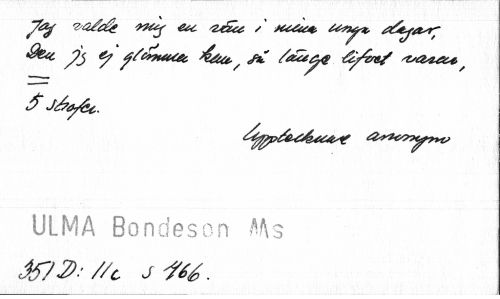 Jag valde mig en vän i mina unga dagar,
Den jg ej glömma kan, så länge lifvet varar,
=
5 strofer.
Upptecknare anonym
ULMA Bondeson Ms
351 D: 11c s 466.